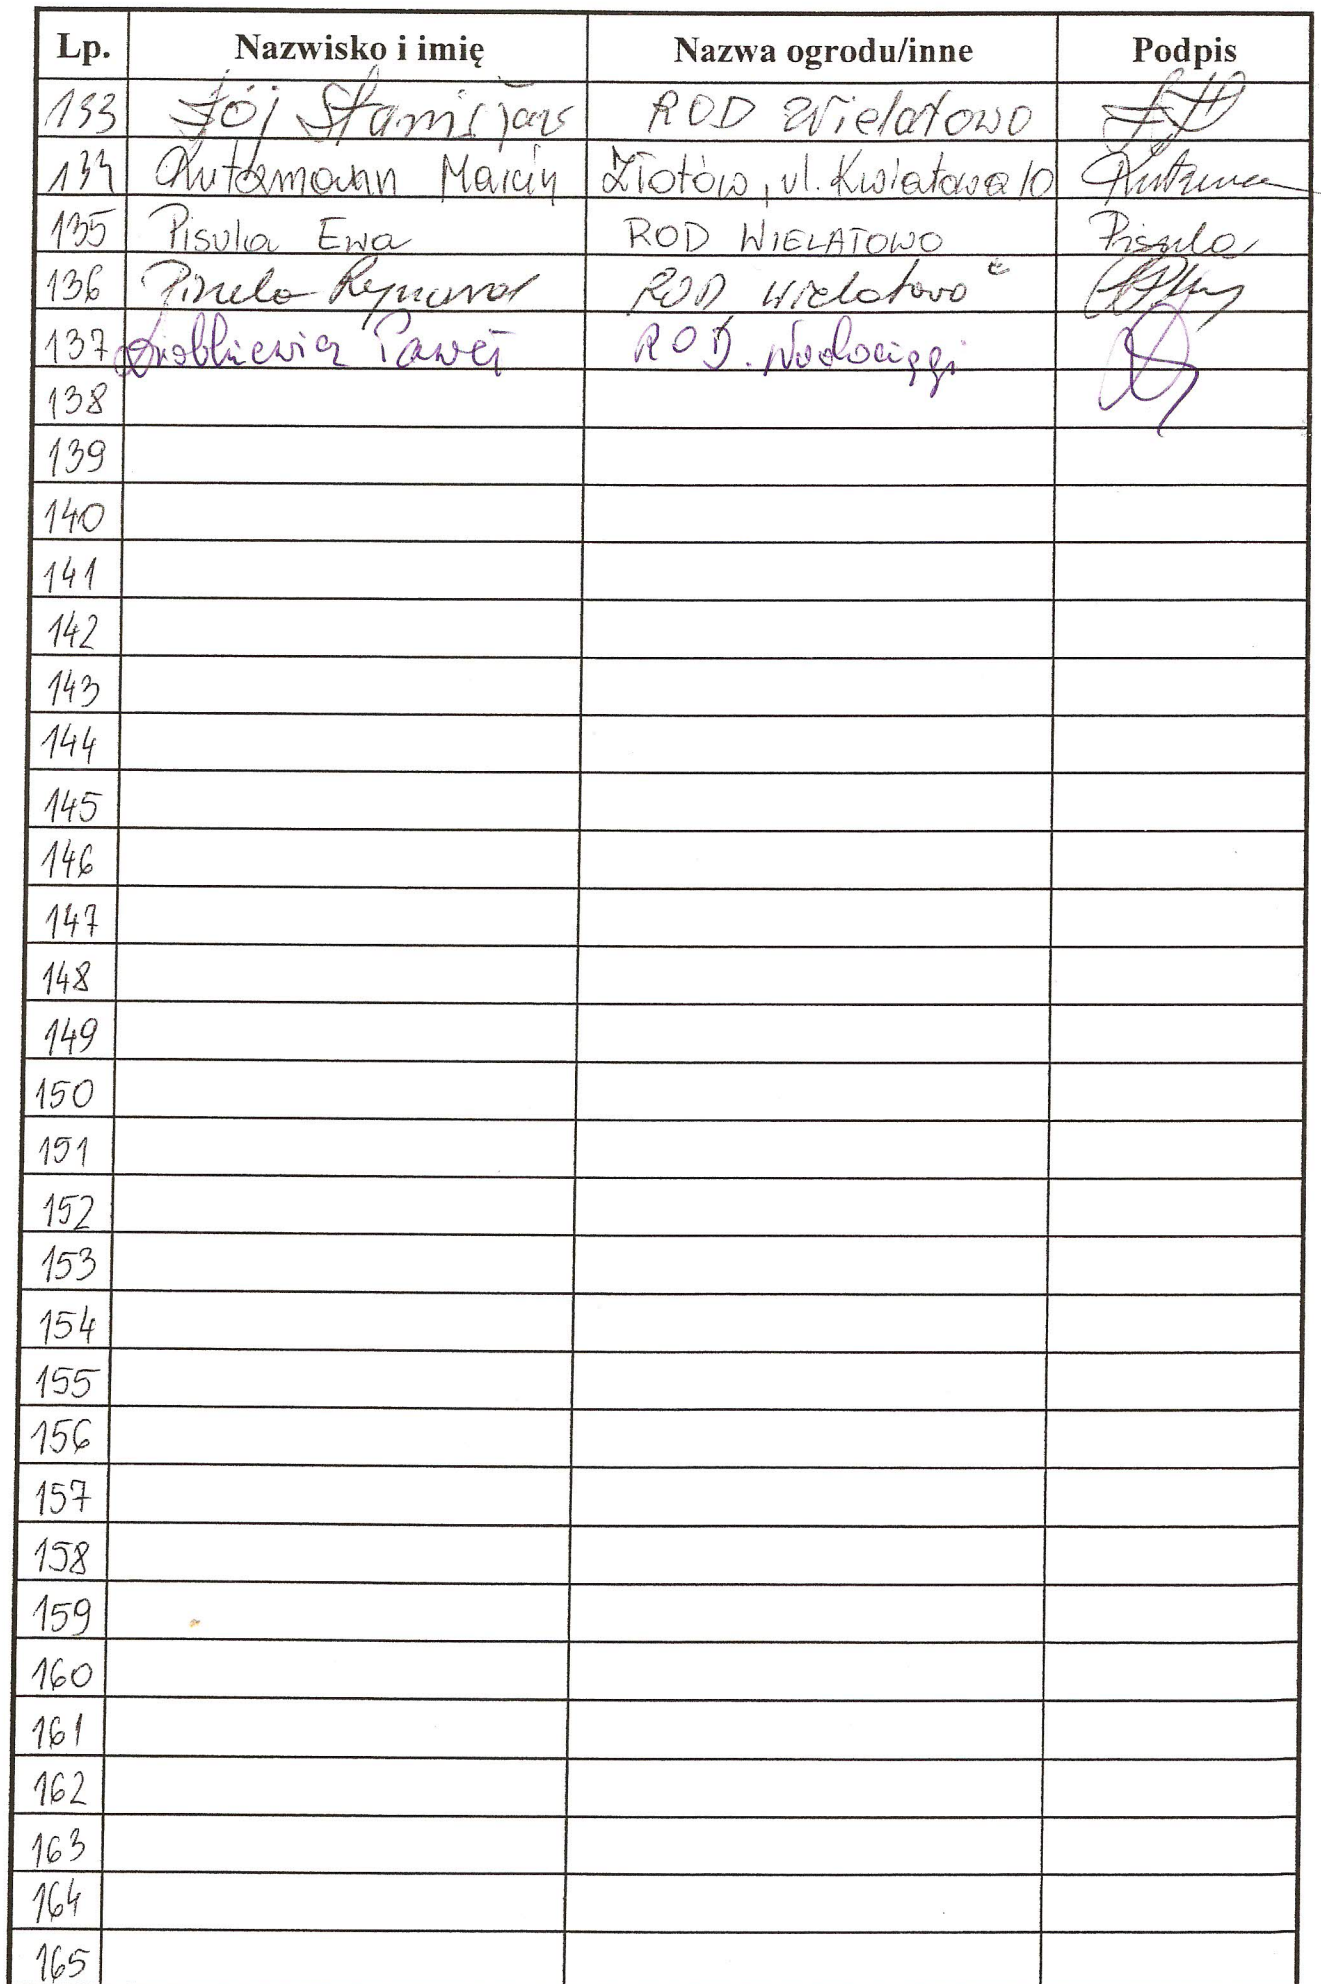 Lp. Nazwisko i imię Nazwa ogrodu/inne Podpis
133 Łój Stanisław ROD Wielatowo
134 Kutzmann Marcin Złotów, ul. Kwiatowa 10
135 Pisula Ewa ROD WIELATOWO Pisula
136 Pisula Ryszard ROD Wielatowo
137 Paweł ROD. Wodociągi
138
139
140
141
142
143
144
145
146
147
148
149
150
151
152
153
154
155
156
157
158
159
160
161
162
163
164
165